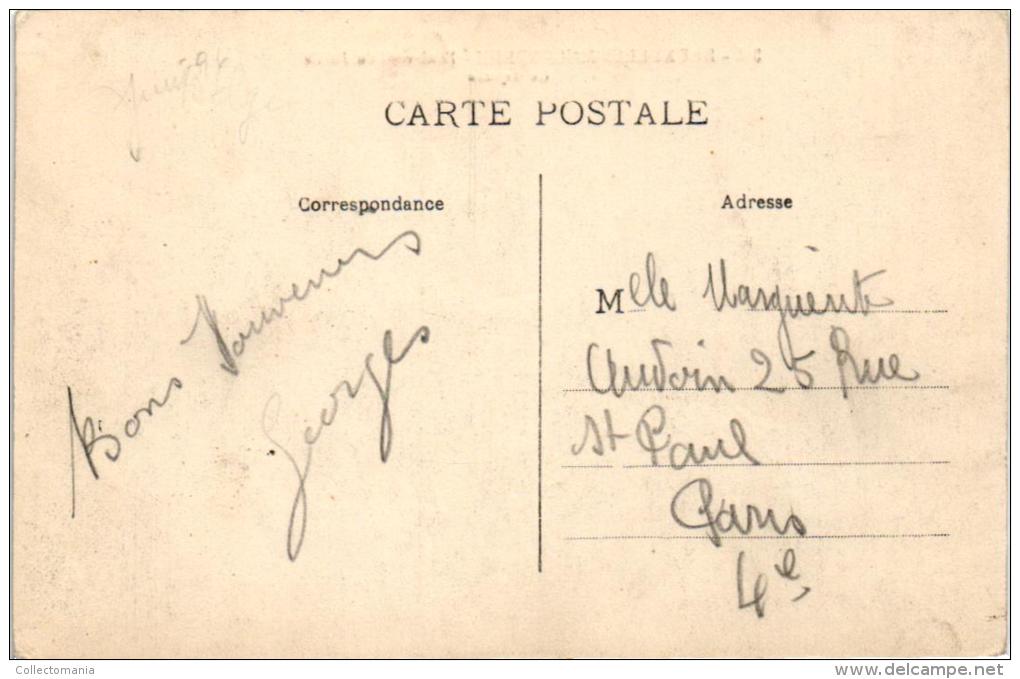 CARTE POSTALE
Correspondance
Bons Souvenirs
Georges
Adresse
Melle Marguerite
Audoin 25 Rue
St Paul
Paris
4e
Collectomania
www.delcampe.net